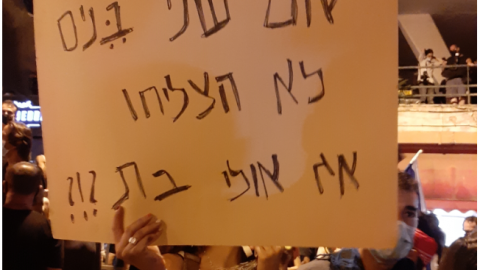 שני בֵּנִים
לא הצליחו
אז אולי בת ?!?